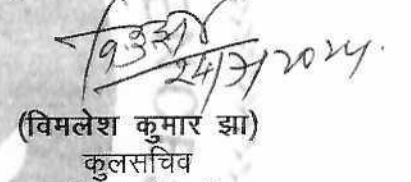 24/7/2024.
(विमलेश कुमार झा)
कुलसचिव